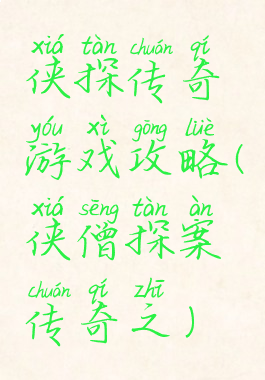 xiá tàn chuán qí
侠探传奇
yóu xì gōng lüè
游戏攻略(
xiá sēng tàn àn
侠僧探案
chuán qí zhī
传奇之)